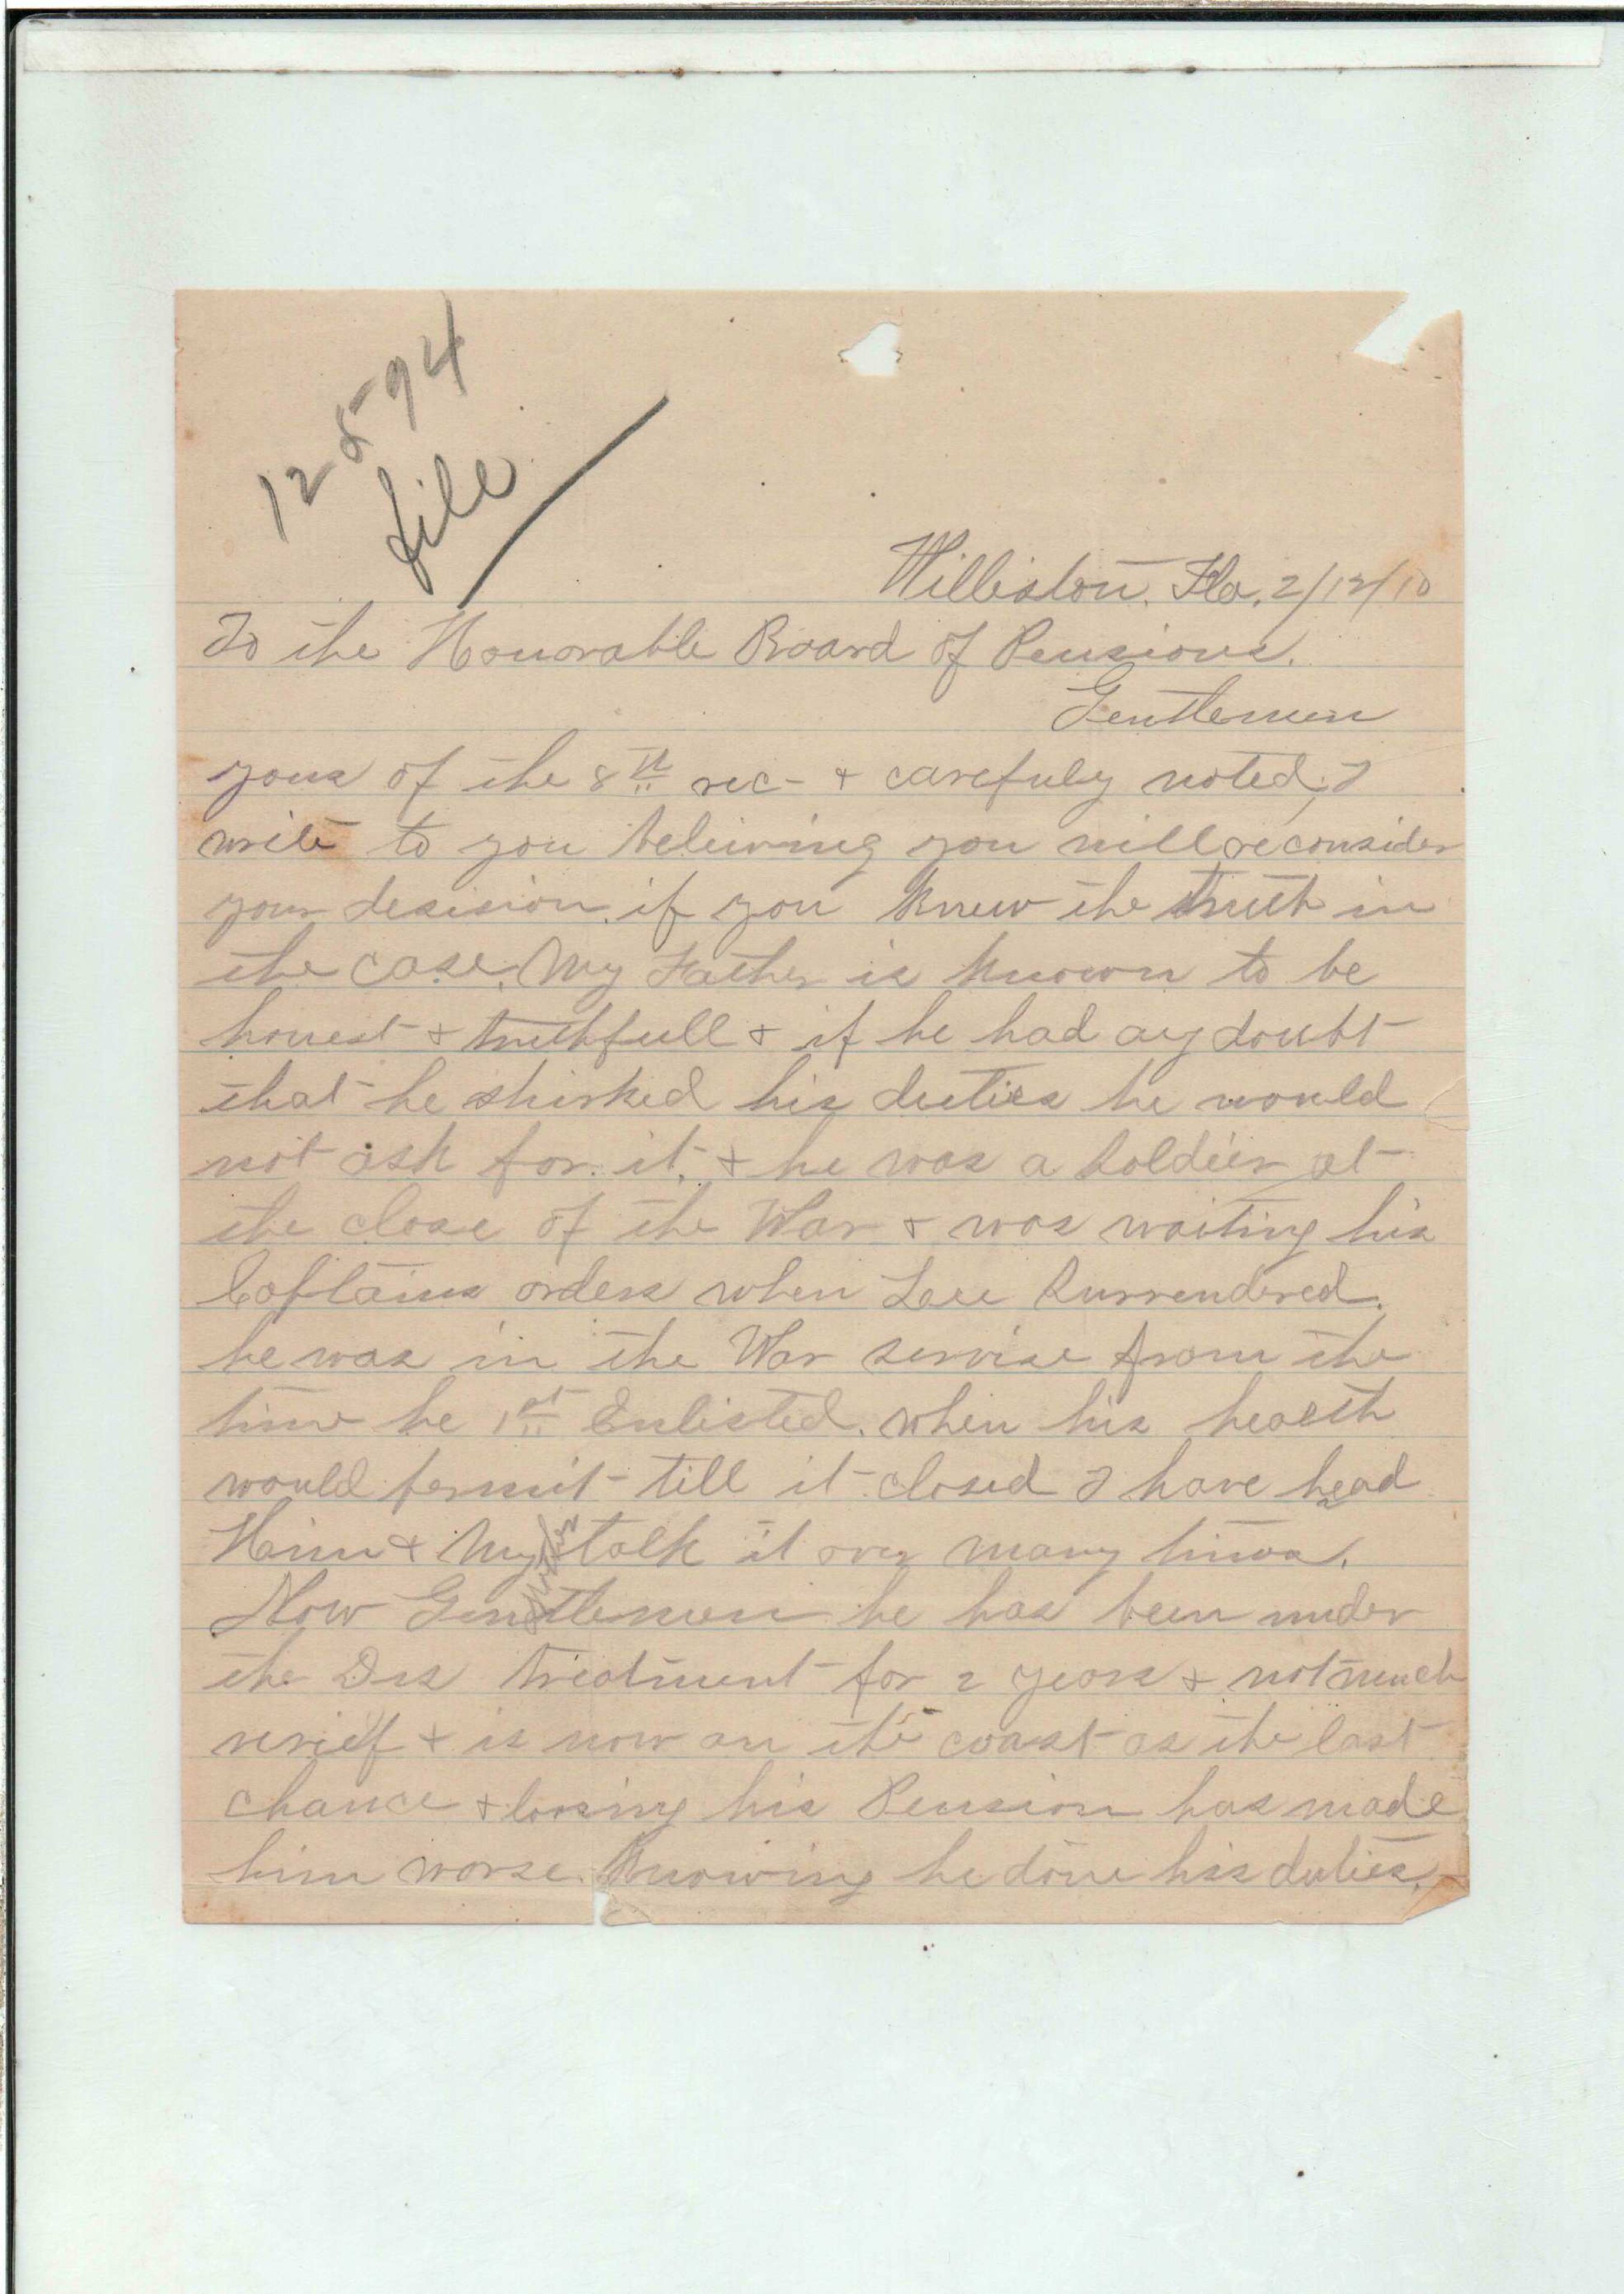 12594
file
Williston, Fla, 2/12/10
To the Honorable Board of Pensions.
Gentlemen
yous of the 8th rec- & carefuly noted, I
write to you beleiving you will reconsider
your desision if you knew the truth in
the case. My Father is known to be
honest & truthfull & if he had any doubt
that he shirked his duties he would
not ask for it, & he was a Soldier at
the close of the War & was waiting his
Captains orders when Lee Surrendered.
he was in the War servise from the
time he 1st Enlisted. when his health
would permit till it closed I have head
Him & My Mother talk it over many times.
Now Gentlemen he has been under
the Drs treatment for 2 years & not much
relief & is now on the coast as the last
chance & loosing his Pension has made
him worse. Knowing he done his duties.